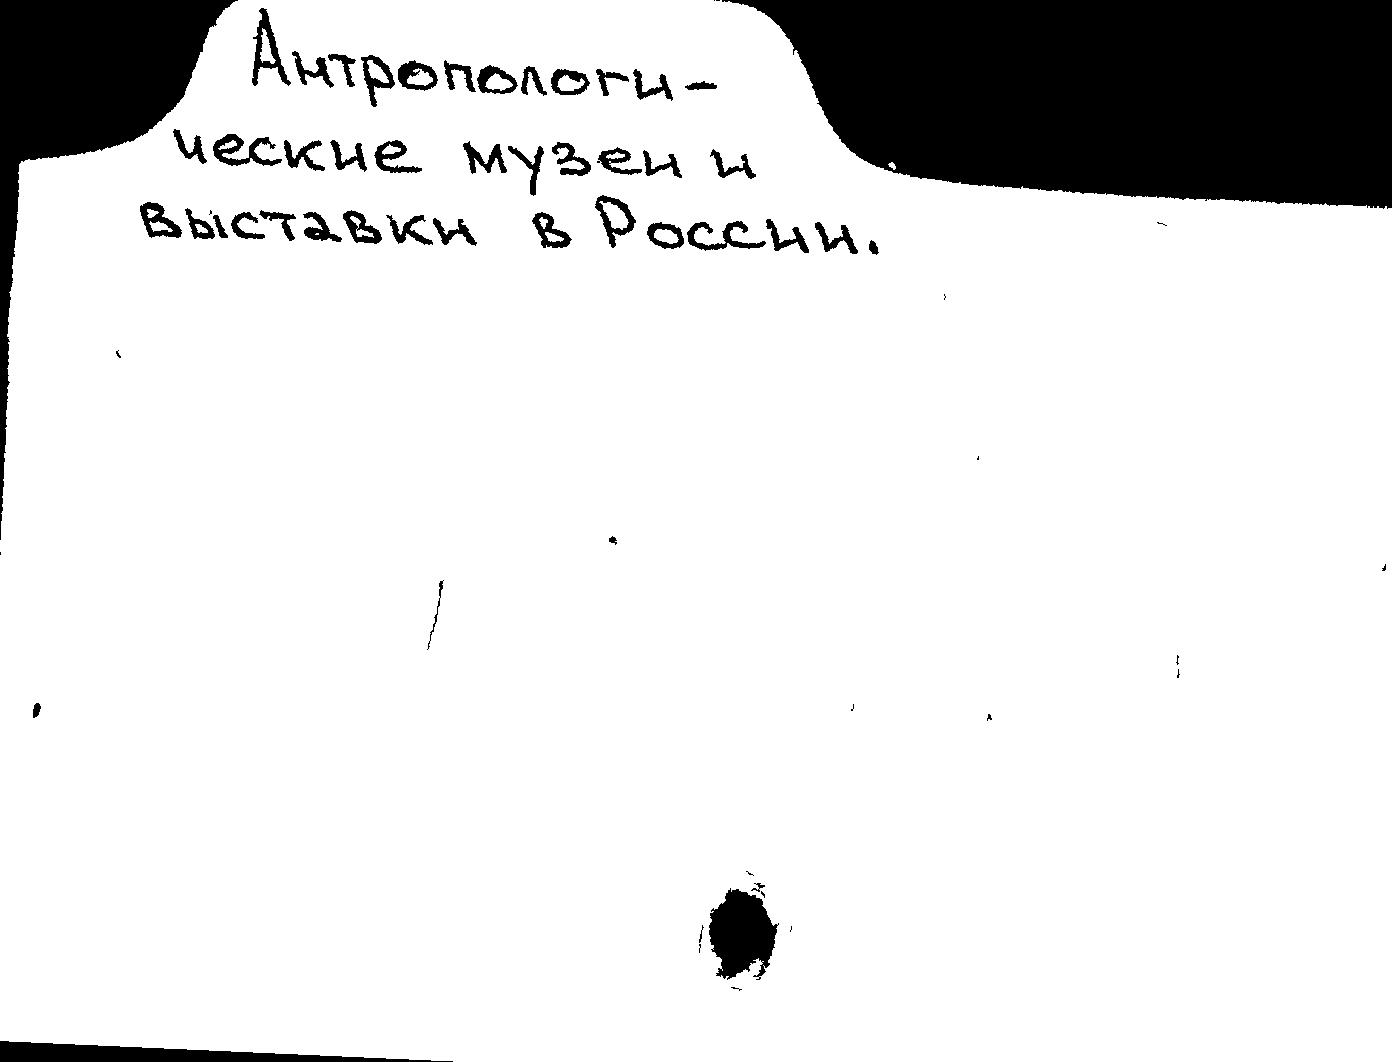 Антропологи-
ческие музеи и
выставки в России.